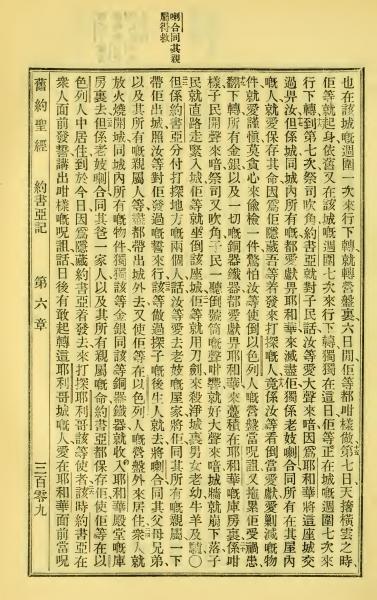 喇合同其親
屬得救
也在該城嘅週圍一次來行下轉就轉營盤裏六日間佢等都咁樣做第七日天揸橫雲之時
佢等就起身依舊又在該城嘅週圍七次來行下轉獨獨在這日佢等正在城嘅週圍七次來
行下轉到第七次祭司吹角約書亞就對子民話汝等愛大聲來喑因爲耶和華將這座城交
過畀汝但係城同城內所有嘅都愛獻畀耶和華來滅盡佢獨係老妓喇合同所有在其屋內
嘅人就愛保存其命因爲佢隱藏吾等着發來打探嘅人竟係汝等看倒當愛獻愛剿滅嘅物
件就愛謹愼莫貪心來偸檢一件驚怕汝等使倒以色列人嘅營盤當呪詛又拖累佢受禍患
翻下轉所有金銀以及一切嘅銅器鐵器都愛獻畀耶和華來蘴積在耶和華嘅庫房裏係咁
樣子民開聲來喑祭司又吹角子民一聽倒號筒嘅聲咁響就好大聲來喑城牆就崩下落子
民就直路走緊入城佢等就坐倒該座城佢等就用刀劍來殺淨城裏男女老幼牛羊及驢〇
但係約書亞分付打探地方嘅兩個人話汝等愛去老妓嘅屋家將佢同其所有嘅親屬一下
帶佢出城照汝等對佢發過嘅誓來行該等做過探子嘅後生人就去將喇合同其父母兄弟
以及其所有嘅親屬人等盡都帶出城外去又使佢等在以色列人嘅營盤外來居住衆人就
放火燒開城同城內所有嘅物件獨獨該等金銀同該等銅器鐵器就收入耶和華殿堂嘅庫
房裏去但係老妓喇合同其爸一家人以及其所有親屬嘅命約書亞都保存佢使佢等在以
色列人中居住到於今日因爲隱藏約書亞着發去來打探耶利哥該等使者該時約書亞在
衆人面前發誓講出咁樣嘅呪詛話日後有敢起轉這耶利哥城嘅人愛在耶和華面前當呪
舊約聖經 約書亞記 第六章 三百零九